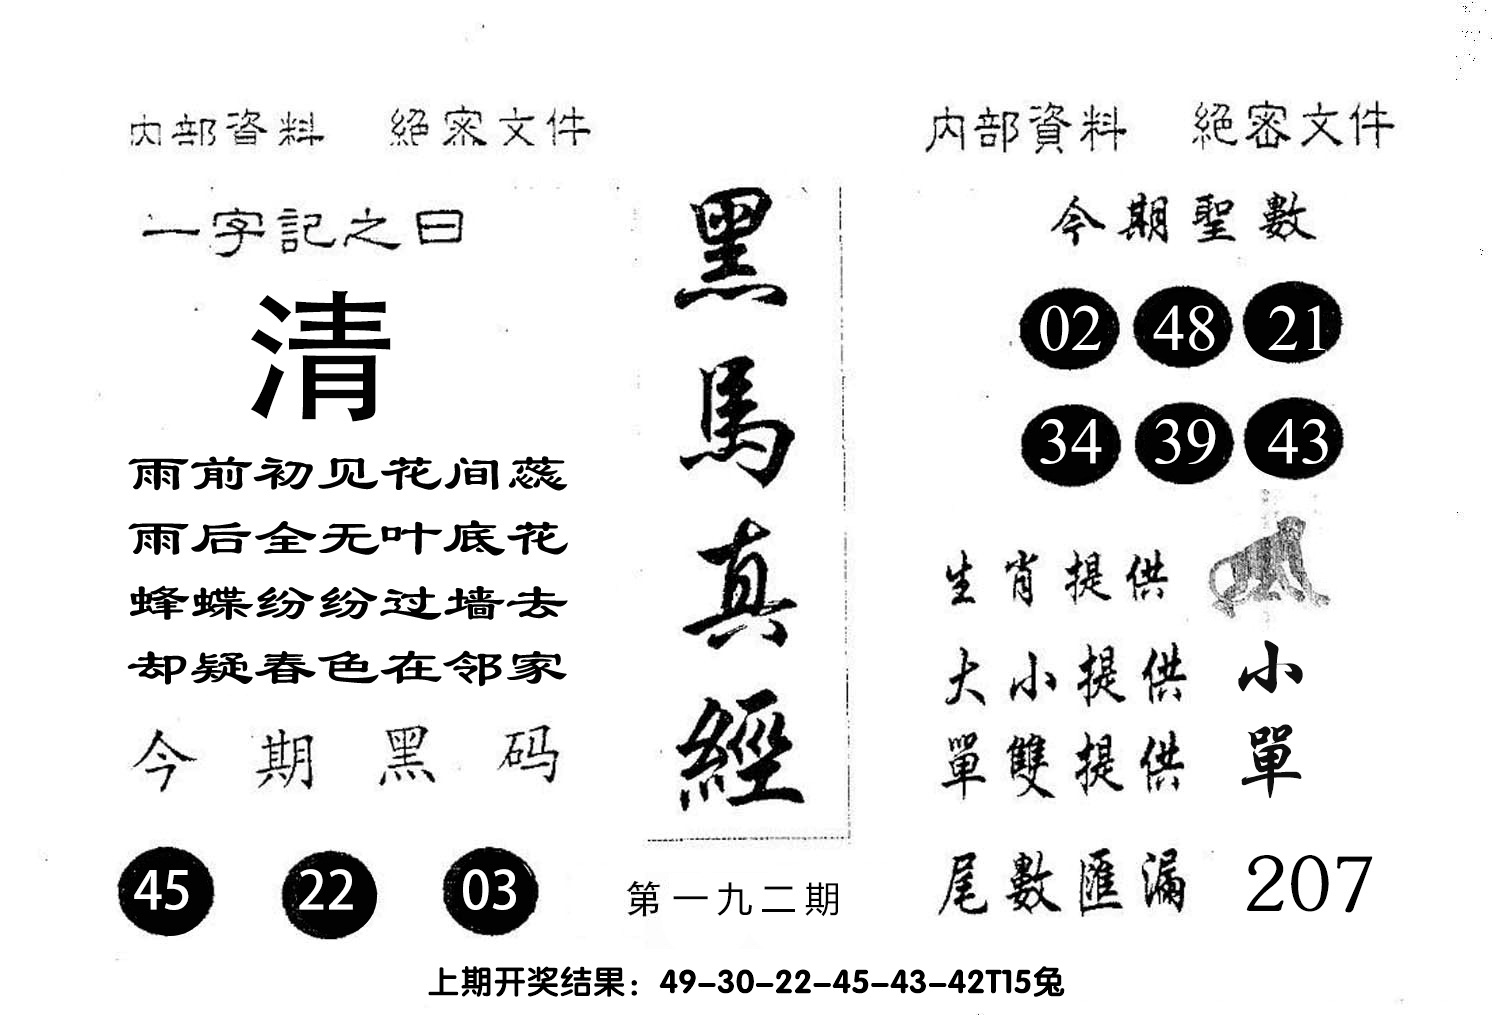 内部資料 絕密文件
一字記之曰
清
雨前初见花间蕊
雨后全无叶底花
蜂蝶纷纷过墙去
却疑春色在邻家
今期黑码
45 22 03
黑馬真經
第一九二期
内部資料 絕密文件
今期聖數
02 48 21
34 39 43
生肖提供
大小提供 小
單雙提供 單
尾數匯漏 207
上期开奖结果：49-30-22-45-43-42T15兔